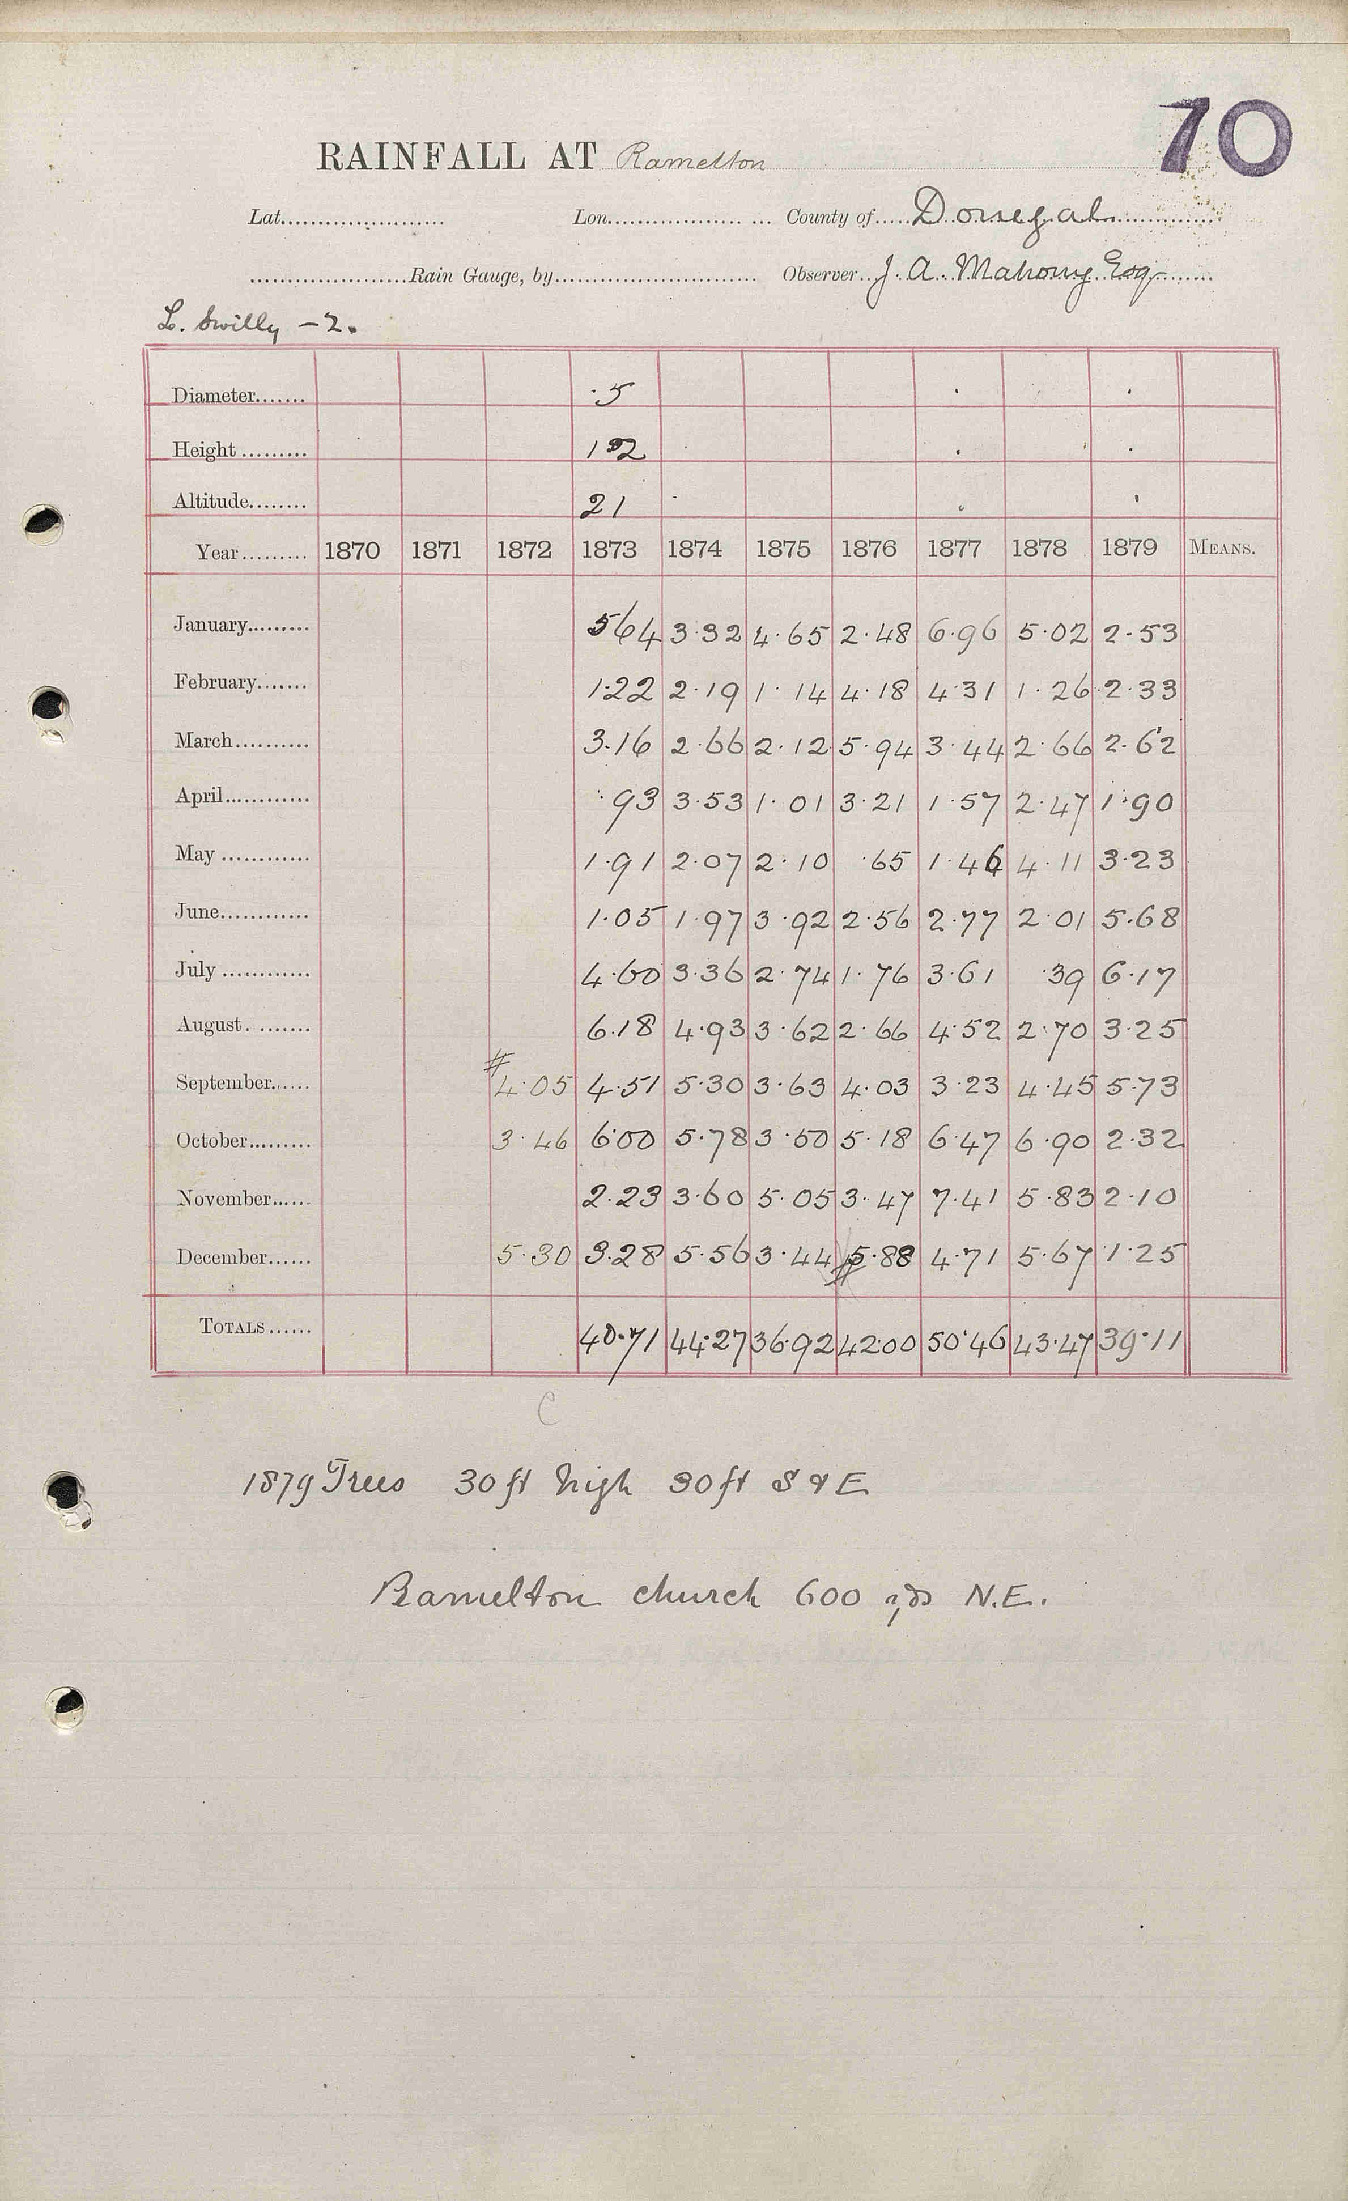 70
RAINFALL AT Ramelton
Lat. Lon. County of Donegal
Rain Gauge, by Observer J. A. Mahony Esq
L. Swilly - 2.
Diameter ·5
Height
Altitude 21
Year 1870 1871 1872 1873 1874 1875 1876 1877 1878 1879 MEANS.
January 564 3·32 4·65 2·48 6·96 5·02 2·53
February 1·22 2·19 1·14 4·18 4·31 1·26 2·33
March 3·16 2·66 2·12 5·94 3·44 2·66 2·62
April ·93 3·53 1·01 3·21 1·57 2·47 1·90
May 1·91 2·07 2·10 ·65 1·46 4·11 3·23
June 1·05 1·97 3·92 2·56 2·77 2·01 5·68
July 4·60 3·36 2·74 1·76 3·61 ·39 6·17
August 6·18 4·93 3·62 2·66 4·52 2·70 3·25
September # 4·05 4·51 5·30 3·63 4·03 3·23 4·45 5·73
October 3·46 6·00 5·78 3·50 5·18 6·47 6·90 2·32
November 2·23 3·60 5·05 3·47 7·41 5·83 2·10
December 5·30 3·28 5·56 3·44 # 5·88 4·71 5·67 1·25
TOTALS 40·71 44·27 36·92 42·00 50·46 43·47 39·11
C
1879 Trees 30 ft high 30 ft S & E
Ramelton church 600 yds N.E.